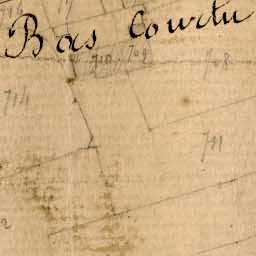 Bas Courtu
710 709 708
714
711
2